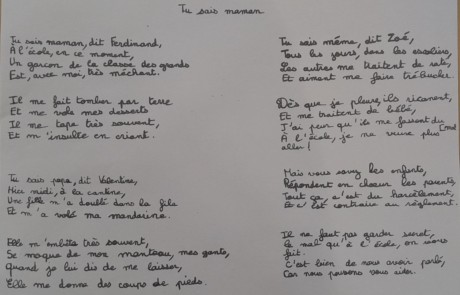 Tu sais maman
Tu sais maman, dit Ferdinand,
À l'école, en ce moment,
Un garçon de la classe des grands
Est, avec moi, très méchant.
Il me fait tomber par terre
Et me vole mes desserts
Il me tape très souvent,
Et m'insulte en criant.
Tu sais papa, dit Valentine,
Hier midi, à la cantine,
Une fille m'a doublé dans la file
Et m'a volé ma mandarine.
Elle m'embête très souvent,
Se moque de mon manteau, mes gants,
Quand je lui dis de me laisser,
Elle me donne des coups de pieds.
Tu sais mémé, dit Zoé,
Tous les jours, dans les escaliers,
Les autres me traitent de rats,
Et aiment me faire trébucher.
Dès que je pleure, ils ricanent,
Et me traitent de bébé,
J'ai peur qu'ils me fassent du [mal
À l'école, je ne veux plus
aller !
Mais vous savez les enfants,
Répondent en chœur les parents,
Tout ça, c'est du harcèlement,
Et c'est contraire au règlement.
Il ne faut pas garder secret,
Le mal qu'à l'école, on vous
fait.
C'est bien de nous avoir parlé,
Car nous pouvons vous aider.